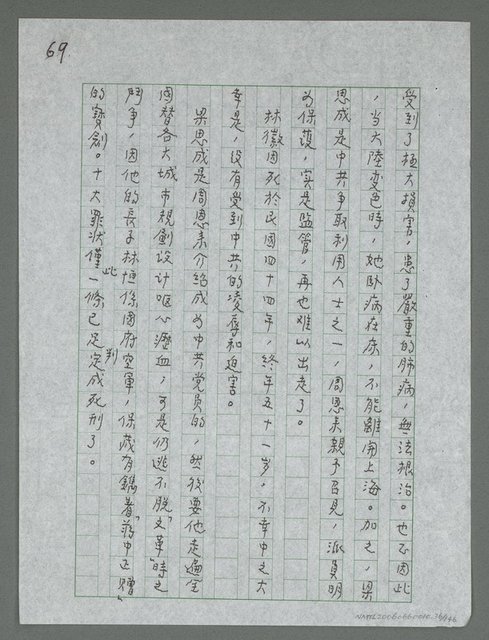 69
受到了極大損害，患了嚴重的肺病，無法根治。也正因此
，當大陸變色時，她卧病在床，不能離開上海。加之，梁
思成是中共爭取利用人士之一，周恩来親予召見，派員明
為保護，实是监管，再也难以出走了。
林徽因死於民國四十四年，終年五十一岁，不幸中之大
幸是，没有受到中共的凌辱和迫害。
梁思成是周恩来介紹成為中共党員的，然後要他走遍全
國替各大城市規劃设计嘔心瀝血，可是仍逃不脱「文革」時之
鬥爭，因他的長子林恒係國府空軍，保藏有鐫着「蒋中正贈」
的寶劍。十大罪状僅此一條已足定判成死刑了。
NMTL20060660010.36/046